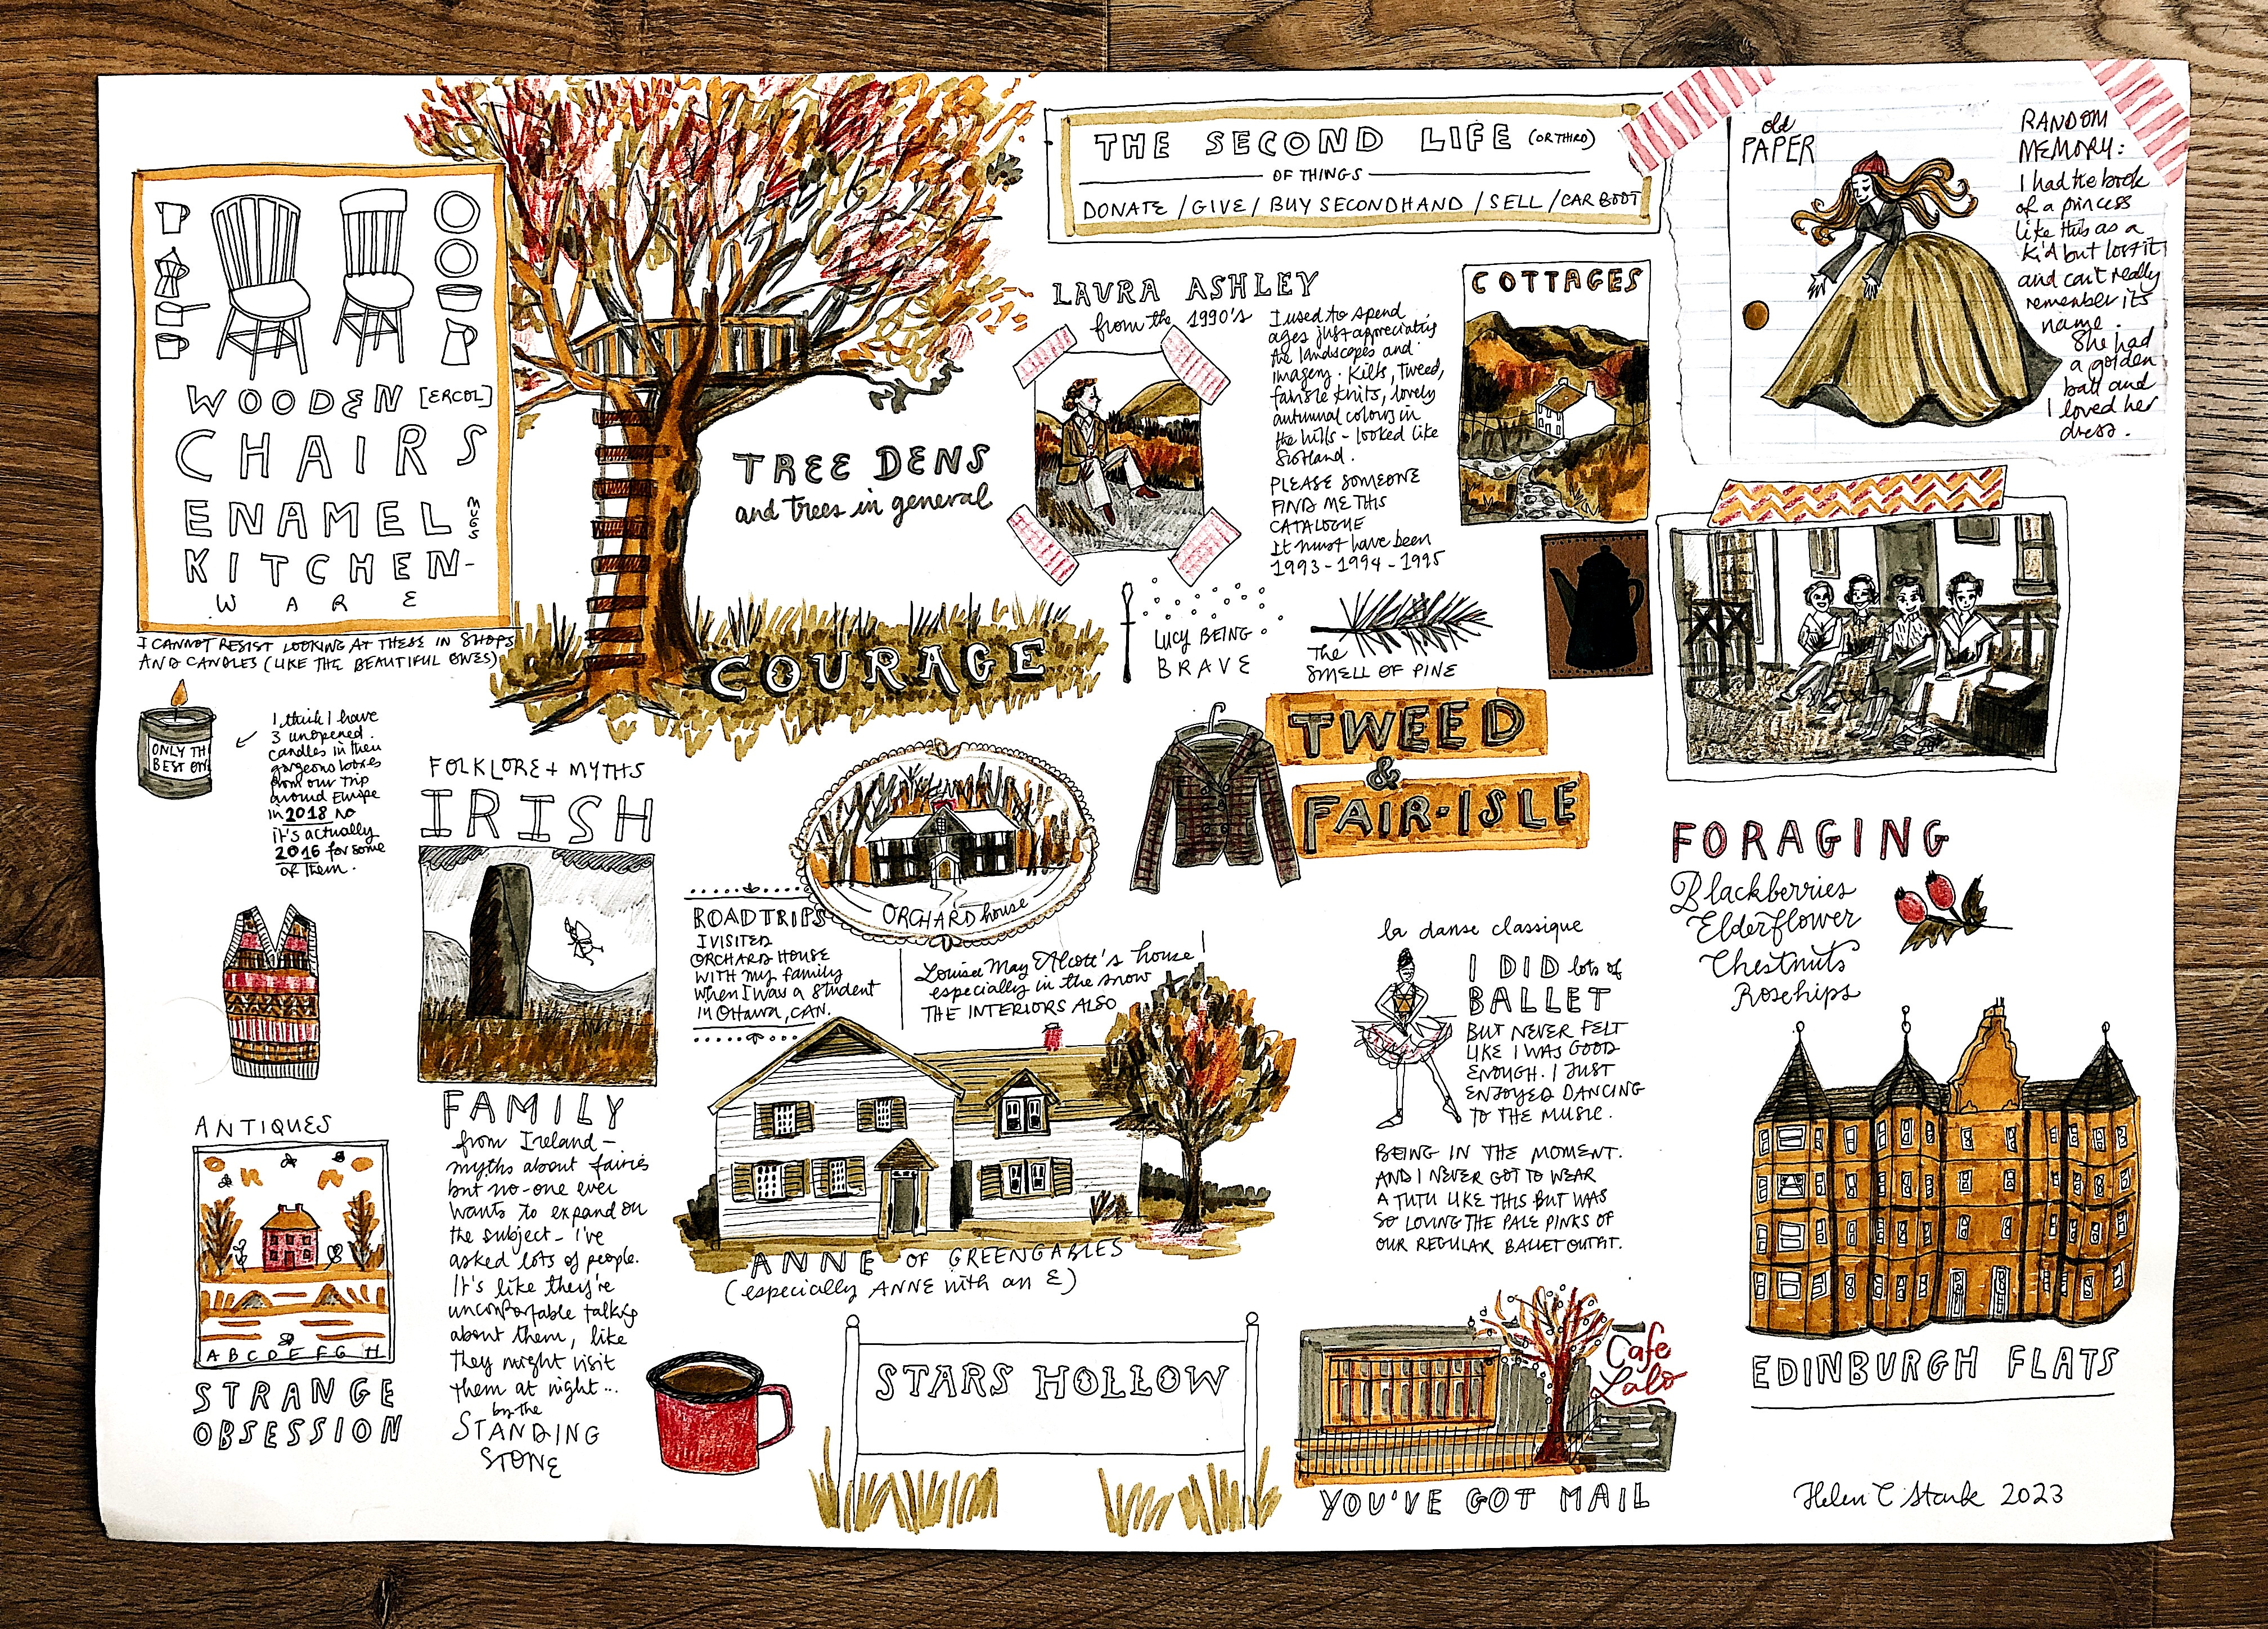 WOODEN [ERCOL]
CHAIRS
ENAMEL MUGS
KITCHEN-
WARE
I CANNOT RESIST LOOKING AT THESE IN SHOPS
AND CANDLES (LIKE THE BEAUTIFUL ONES)
ONLY TH
BEST ON
I think I have
3 unopened
candles in their
gorgeous boxes
from our trip
around Europe
in 2018 no
it's actually
2016 for some
of them.
TREE DENS
and trees in general
COURAGE
THE SECOND LIFE (OR THIRD)
OF THINGS
DONATE / GIVE / BUY SECONDHAND / SELL / CAR BOOT
LAURA ASHLEY
from the 1990's
I used to spend
ages just appreciating
the landscapes and
imagery. Kilts, tweed,
fairisle knits, lovely
autumnal colours in
the hills - looked like
Scotland.
PLEASE SOMEONE
FIND ME THIS
CATALOGUE
It must have been
1993 - 1994 - 1995
COTTAGES
old
PAPER
RANDOM
MEMORY:
I had the book
of a princess
like this as a
kid but lost it
and can't really
remember its
name.
She had
a golden
ball and
I loved her
dress.
LUCY BEING
BRAVE
The
SMELL OF PINE
TWEED
&
FAIR-ISLE
FORAGING
Blackberries
Elderflower
Chestnuts
Rosehips
FOLKLORE + MYTHS
IRISH
FAMILY
from Ireland -
myths about fairies
but no-one ever
wants to expand on
the subject - I've
asked lots of people.
It's like they're
uncomfortable talking
about them, like
they might visit
them at night...
by the
STANDING
STONE
ORCHARD house
ROADTRIPS
I VISITED
ORCHARD HOUSE
WITH my family
when I was a student
in Ottawa, CAN.
Louisa May Alcott's house
especially in the snow
THE INTERIORS ALSO
ANNE OF GREENGABLES
(especially ANNE with an E)
la danse classique
I DID lots of
BALLET
BUT NEVER FELT
LIKE I WAS GOOD
ENOUGH. I JUST
ENJOYED DANCING
TO THE MUSIC.
BEING IN THE MOMENT.
AND I NEVER GOT TO WEAR
A TUTU LIKE THIS BUT WAS
SO LOVING THE PALE PINKS OF
OUR REGULAR BALLET OUTFIT.
ANTIQUES
A B C D E F G H
STRANGE
OBSESSION
STARS HOLLOW
Cafe
Lalo
YOU'VE GOT MAIL
EDINBURGH FLATS
Helen C Stark 2023